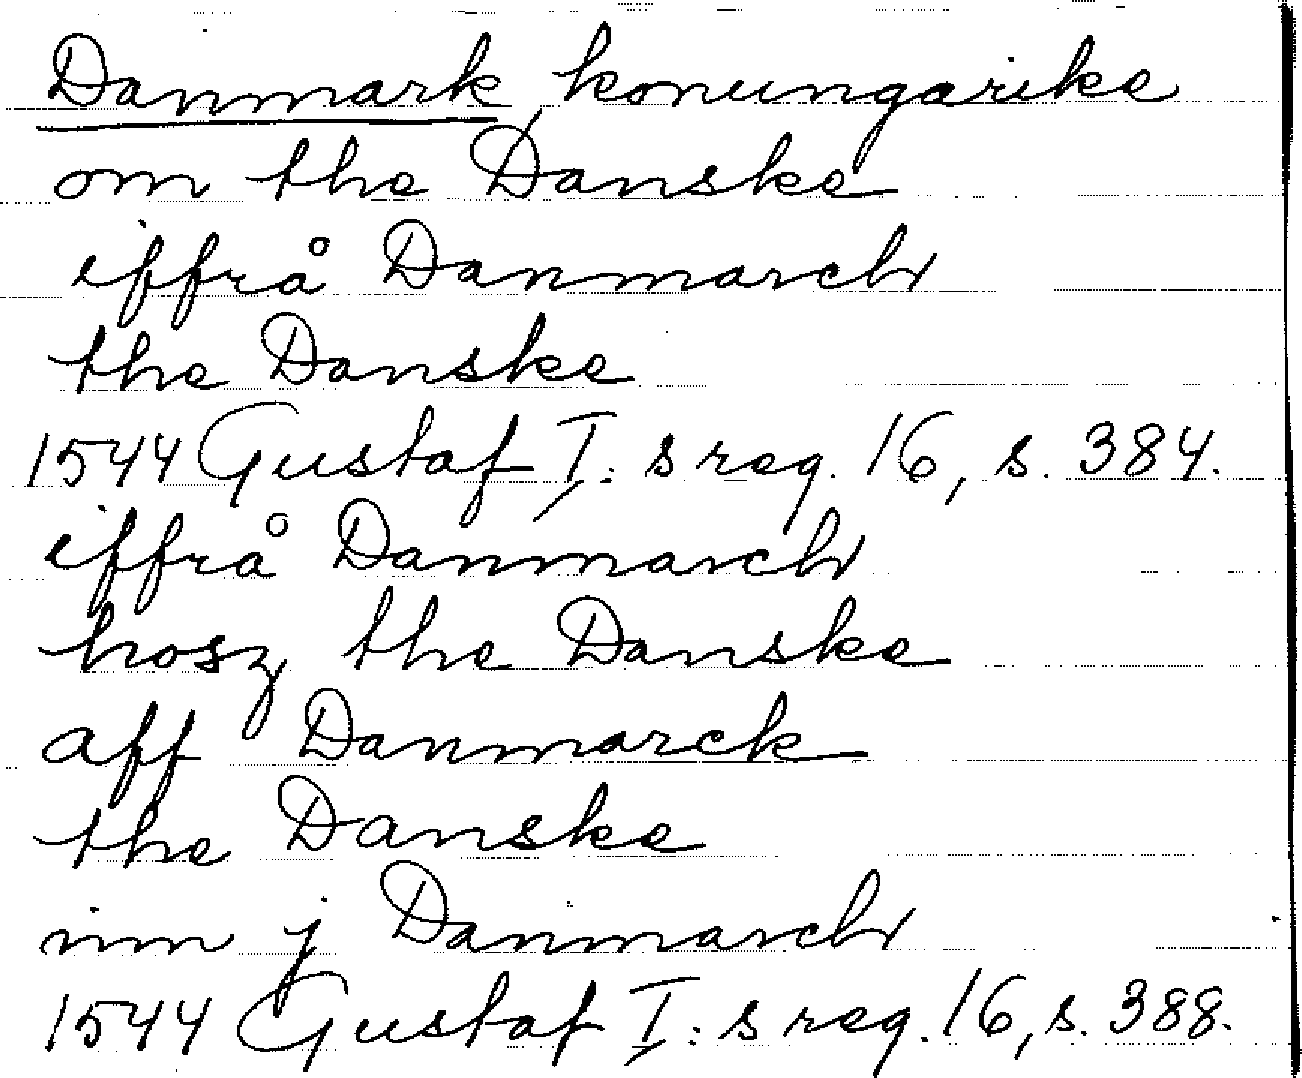 Danmark, konungarike
om the Danske
iffrå Danmarch
the Danske
1544 Gustaf I: s reg. 16, s. 384.
iffrå Danmarch
hosz the Danske
aff Danmarck
the Danske
inn j Danmarch
1544 Gustaf I: s reg. 16, s. 388.